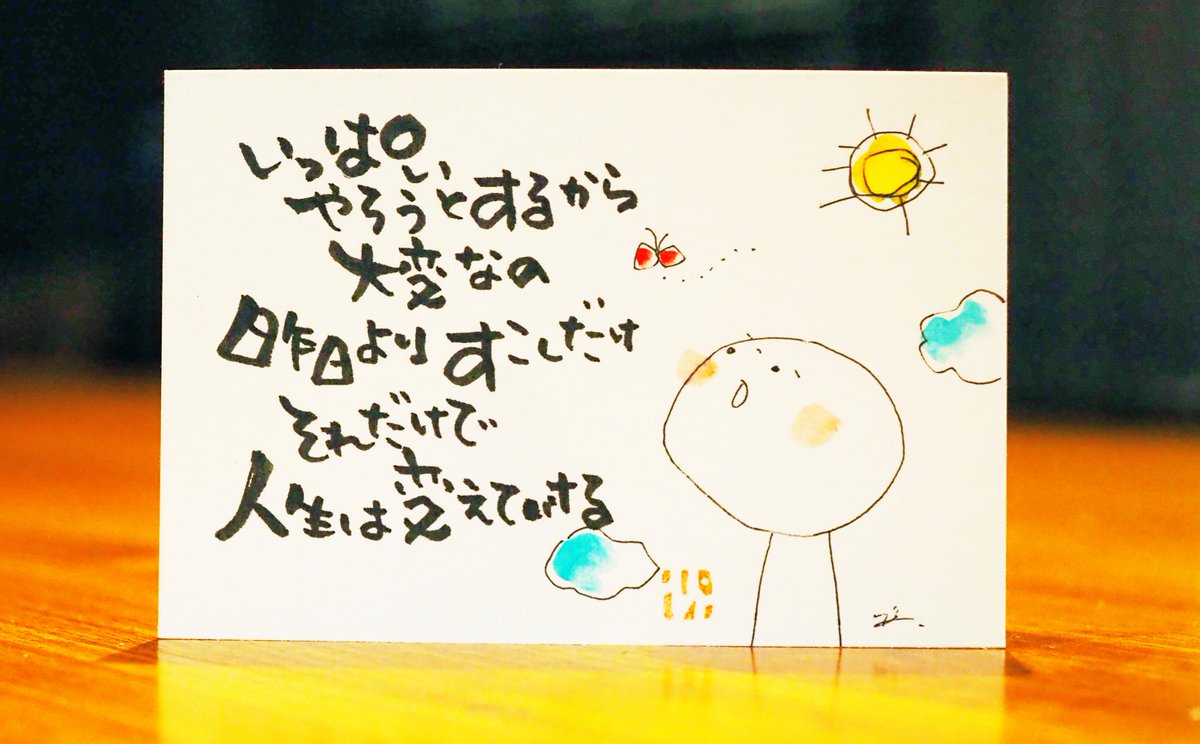 いっぱい
やろうとするから
大変なの
昨日より すこしだけ
それだけで
人生は変えていける